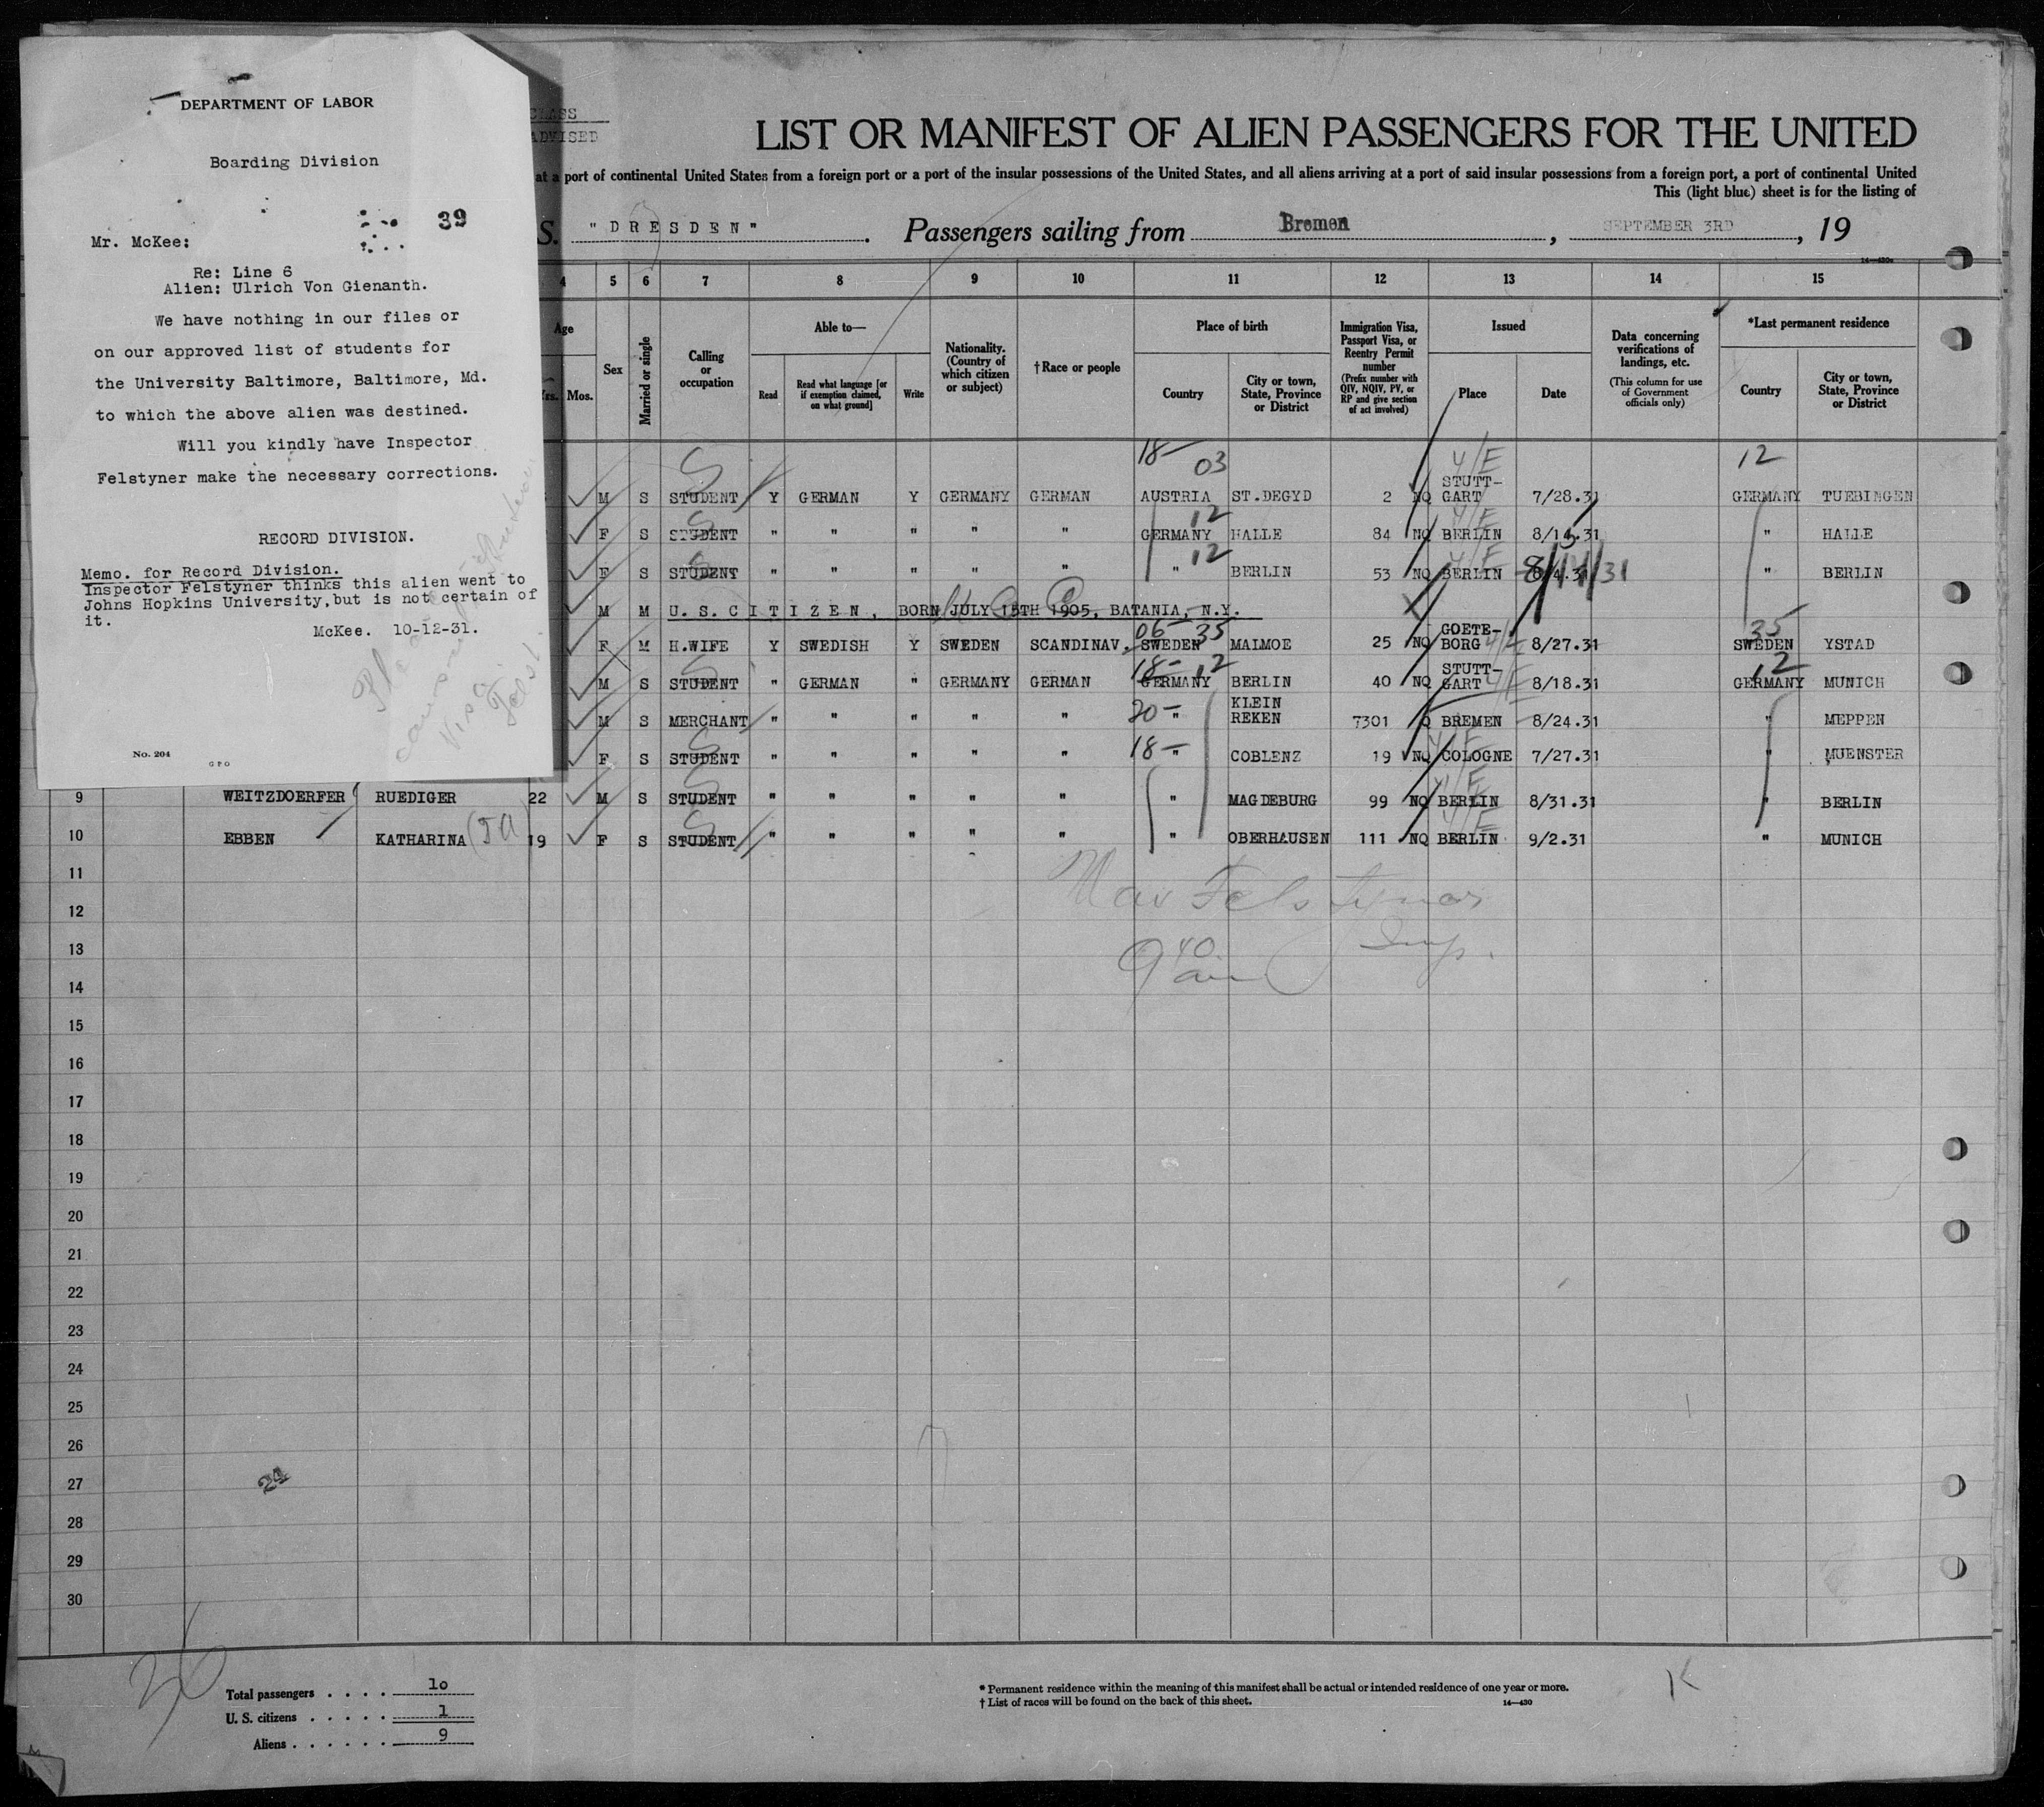 DEPARTMENT OF LABOR
Boarding Division
39
Mr. McKee:
Re: Line 6
Alien: Ulrich Von Gienanth.
We have nothing in our files or
on our approved list of students for
the University Baltimore, Baltimore, Md.
to which the above alien was destined.
Will you kindly have Inspector
Felstyner make the necessary corrections.
RECORD DIVISION.
Memo. for Record Division.
Inspector Felstyner thinks this alien went to
Johns Hopkins University, but is not certain of
it.
McKee. 10-12-31.
No. 204
GPO
CLASS
ADVISED
LIST OR MANIFEST OF ALIEN PASSENGERS FOR THE UNITED
at a port of continental United States from a foreign port or a port of the insular possessions of the United States, and all aliens arriving at a port of said insular possessions from a foreign port, a port of continental United
This (light blue) sheet is for the listing of
S. "DRESDEN". Passengers sailing from Bremen, SEPTEMBER 3RD, 19
14—430a
4 5 6 7 8 9 10 11 12 13 14 15
Age
Yrs. Mos.
Sex
Married or single
Calling or occupation
Able to—
Read
Read what language [or if exemption claimed, on what ground]
Write
Nationality. (Country of which citizen or subject)
†Race or people
Place of birth
Country
City or town, State, Province or District
Immigration Visa, Passport Visa, or Reentry Permit number
(Prefix number with QIV, NQIV, PV, or RP and give section of act involved)
Issued
Place
Date
Data concerning verifications of landings, etc.
(This column for use of Government officials only)
*Last permanent residence
Country
City or town, State, Province or District
18- 03 4/E 12
M S STUDENT Y GERMAN Y GERMANY GERMAN AUSTRIA ST.DEGYD 2 NQ STUTT-GART 7/28.31 GERMANY TUEBINGEN
12 4/E
F S STUDENT " " " " " GERMANY HALLE 84 NQ BERLIN 8/1 .31 " HALLE
12 4/E
F S STUDENT " " " " " " BERLIN 53 NQ BERLIN 8/4.31 8/14/31 " BERLIN
M M U.S.CITIZEN, BORN JULY 15TH 1905, BATANIA, N.Y.
06- 35 35
F M H.WIFE Y SWEDISH Y SWEDEN SCANDINAV. SWEDEN MALMOE 25 NQ GOETE-BORG 4/E 8/27.31 SWEDEN YSTAD
18- 12 12
M S STUDENT " GERMAN " GERMANY GERMAN GERMANY BERLIN 40 NQ STUTT-GART 4/E 8/18.31 GERMANY MUNICH
M S MERCHANT " " " " " 20- " KLEIN REKEN 7301 Q BREMEN 8/24.31 " MEPPEN
F S STUDENT " " " " " 18- " COBLENZ 19 NQ COLOGNE 7/27.31 " MUENSTER
9 WEITZDOERFER RUEDIGER 22 M S STUDENT " " " " " " MAGDEBURG 99 NQ BERLIN 8/31.31 " BERLIN
10 EBBEN KATHARINA 19 F S STUDENT " " " " " " OBERHAUSEN 111 NQ BERLIN 9/2.31 " MUNICH
11
12
13
14
15
16
17
18
19
20
21
22
23
24
25
26
27
28
29
30
Max Felstyner
Insp.
9 40 am
24
Total passengers . . . . 10
U. S. citizens . . . . . 1
Aliens . . . . . . 9
* Permanent residence within the meaning of this manifest shall be actual or intended residence of one year or more.
† List of races will be found on the back of this sheet.
14—430
K